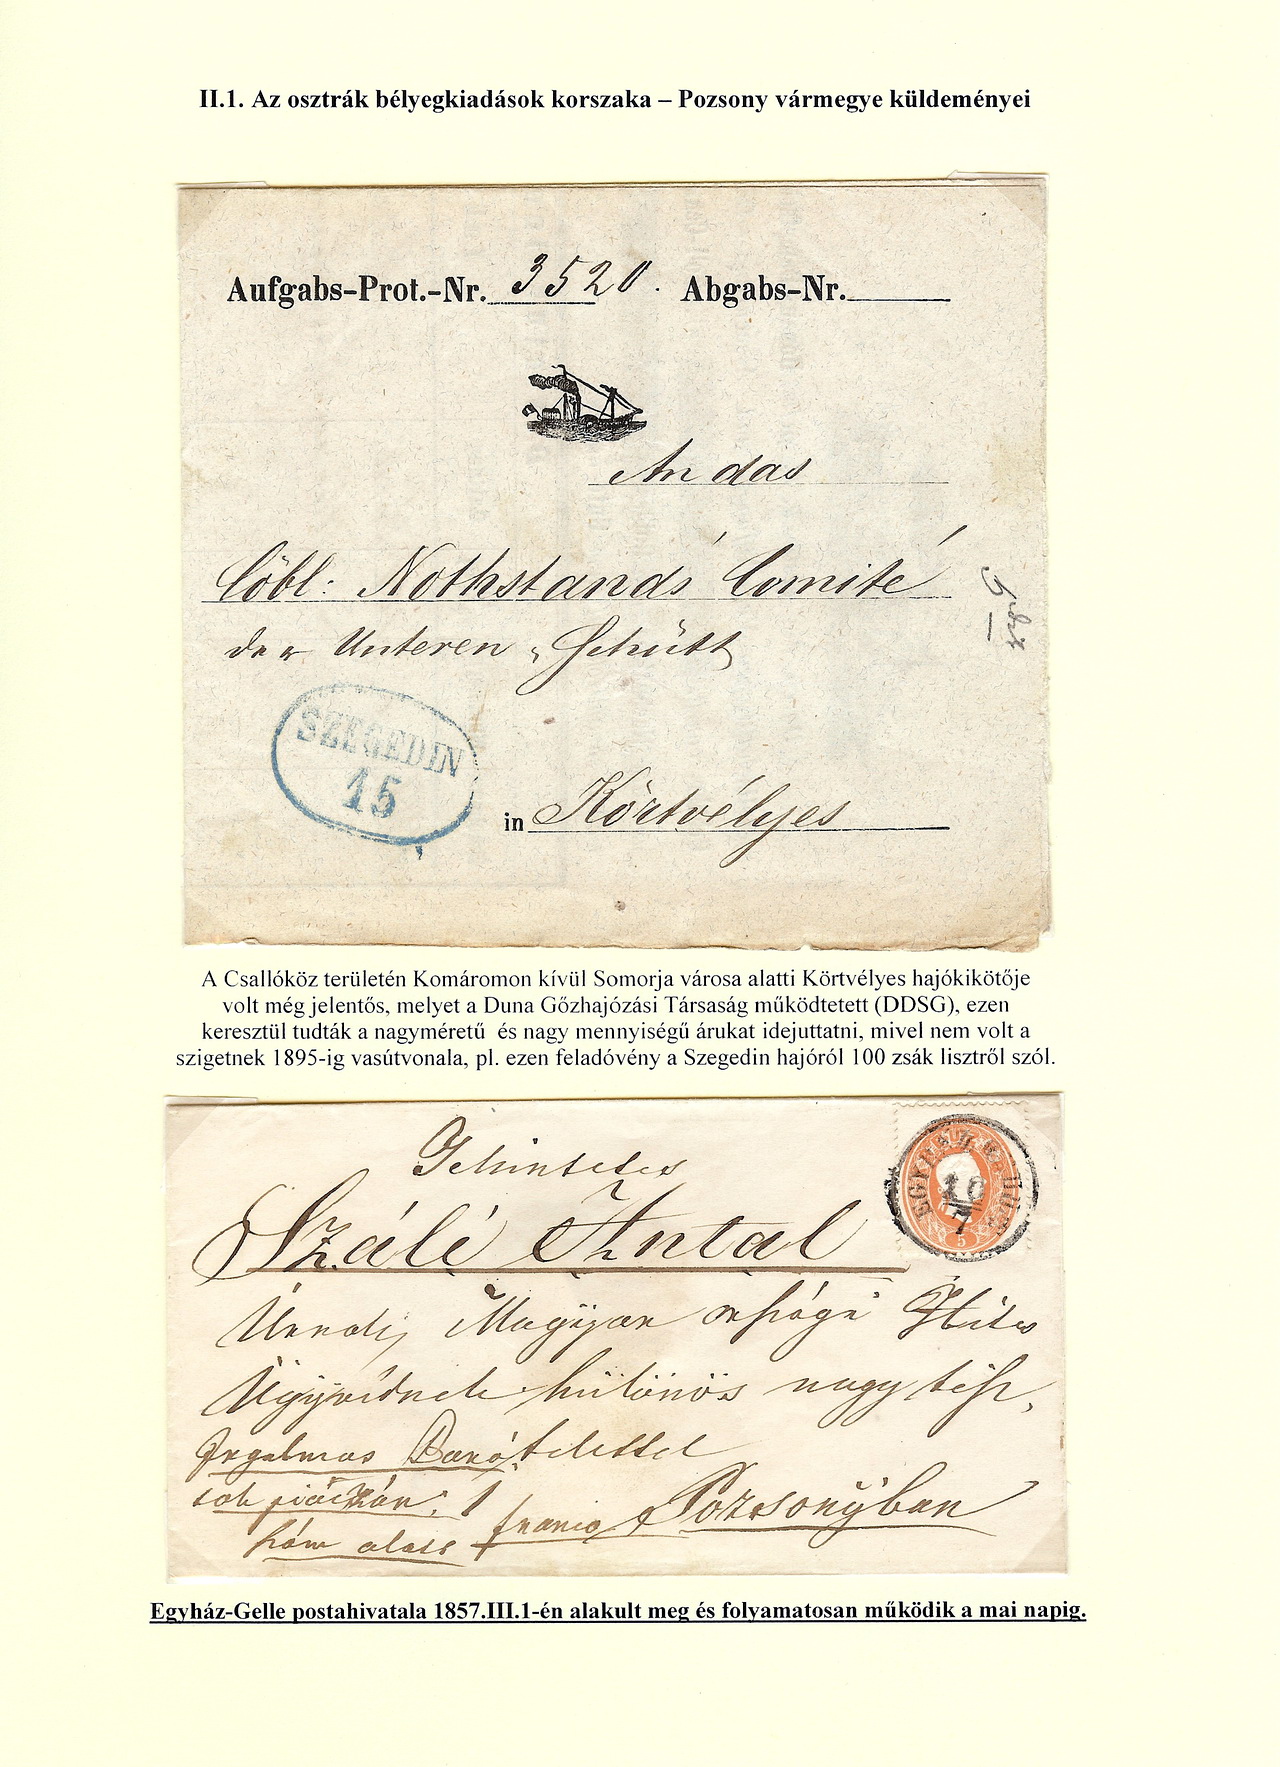 II.1. Az osztrák bélyegkiadások korszaka – Pozsony vármegye küldeményei
Aufgabs-Prot.-Nr. 3520. Abgabs-Nr.
An das
Löbl: Nothstands Comité
der Unteren Schütt
SZEGEDIN
15
in Körtvélyes
A Csallóköz területén Komáromon kívül Somorja városa alatti Körtvélyes hajókikötője
volt még jelentős, melyet a Duna Gőzhajózási Társaság működtetett (DDSG), ezen
keresztül tudták a nagyméretű és nagy mennyiségű árukat idejuttatni, mivel nem volt a
szigetnek 1895-ig vasútvonala, pl. ezen feladóvény a Szegedin hajóról 100 zsák lisztről szól.
Tekintetes
Szálé Antal
10
7
5
Úrnak, Magyar országi Hites
Ügyvédnek különös nagy tisz.
Irgalmas Barát telettel
franco Pozsonyban
Egyház-Gelle postahivatala 1857.III.1-én alakult meg és folyamatosan működik a mai napig.